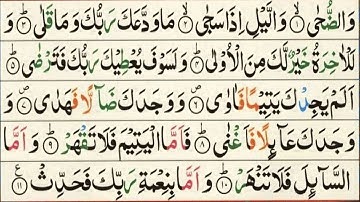 وَالضُّحٰىۙ ۝١ وَالَّيۡلِ اِذَا سَجٰىۙ ۝٢ مَا وَدَّعَكَ رَبُّكَ وَمَا قَلٰىؕ ۝٣ وَ
لَلۡاٰخِرَةُ خَيۡرٌ لَّكَ مِنَ الۡاُوۡلٰىؕ ۝٤ وَلَسَوۡفَ يُعۡطِيۡكَ رَبُّكَ فَتَرۡضٰىؕ ۝٥
اَلَمۡ يَجِدۡكَ يَتِيۡمًا فَاٰوٰى ۝٦ وَوَجَدَكَ ضَآلًّا فَهَدٰى ۝٧ وَ
وَجَدَكَ عَآئِلًا فَاَغۡنٰىؕ ۝٨ فَاَمَّا الۡيَتِيۡمَ فَلَا تَقۡهَرۡؕ ۝٩ وَ اَمَّا
السَّآئِلَ فَلَا تَنۡهَرۡؕ ۝١٠ وَ اَمَّا بِنِعۡمَةِ رَبِّكَ فَحَدِّثۡ ۝١١ ع